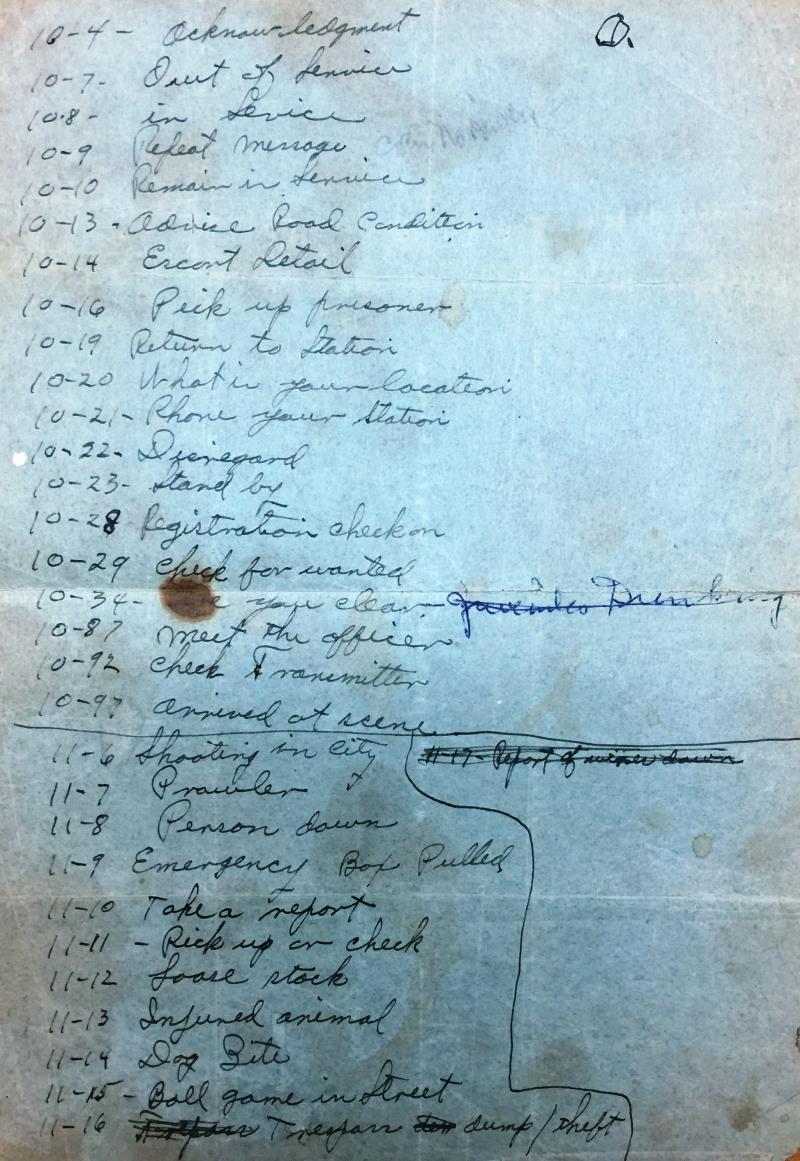 ①.
10-4 - Acknowledgment
10-7- Out of Service
10-8- in Sevice
10-9 Repeat Message
10-10 Remain in Service
10-13 - Advise Road Condition
10-14 Escort Detail
10-16 Pick up prisoner
10-19 Return to Station
10-20 What is your location
10-21- Phone your Station
10-22- Disregard
10-23- Stand by
10-28 Registration check on
10-29 Check for wanted
10-34- you clear - Drinking
10-87 meet the officer
10-92 Check Transmitter
10-97 arrived at scene
11-6 Shooting in City 11-17- Report of wires down
11-7 Prowler
11-8 Person down
11-9 Emergency Box Pulled
11-10 Take a report
11-11 - Pick up or check
11-12 Loose stock
11-13 Injured animal
11-14 Dog Bite
11-15 - Ball game in Street
11-16 Trespass dump/theft